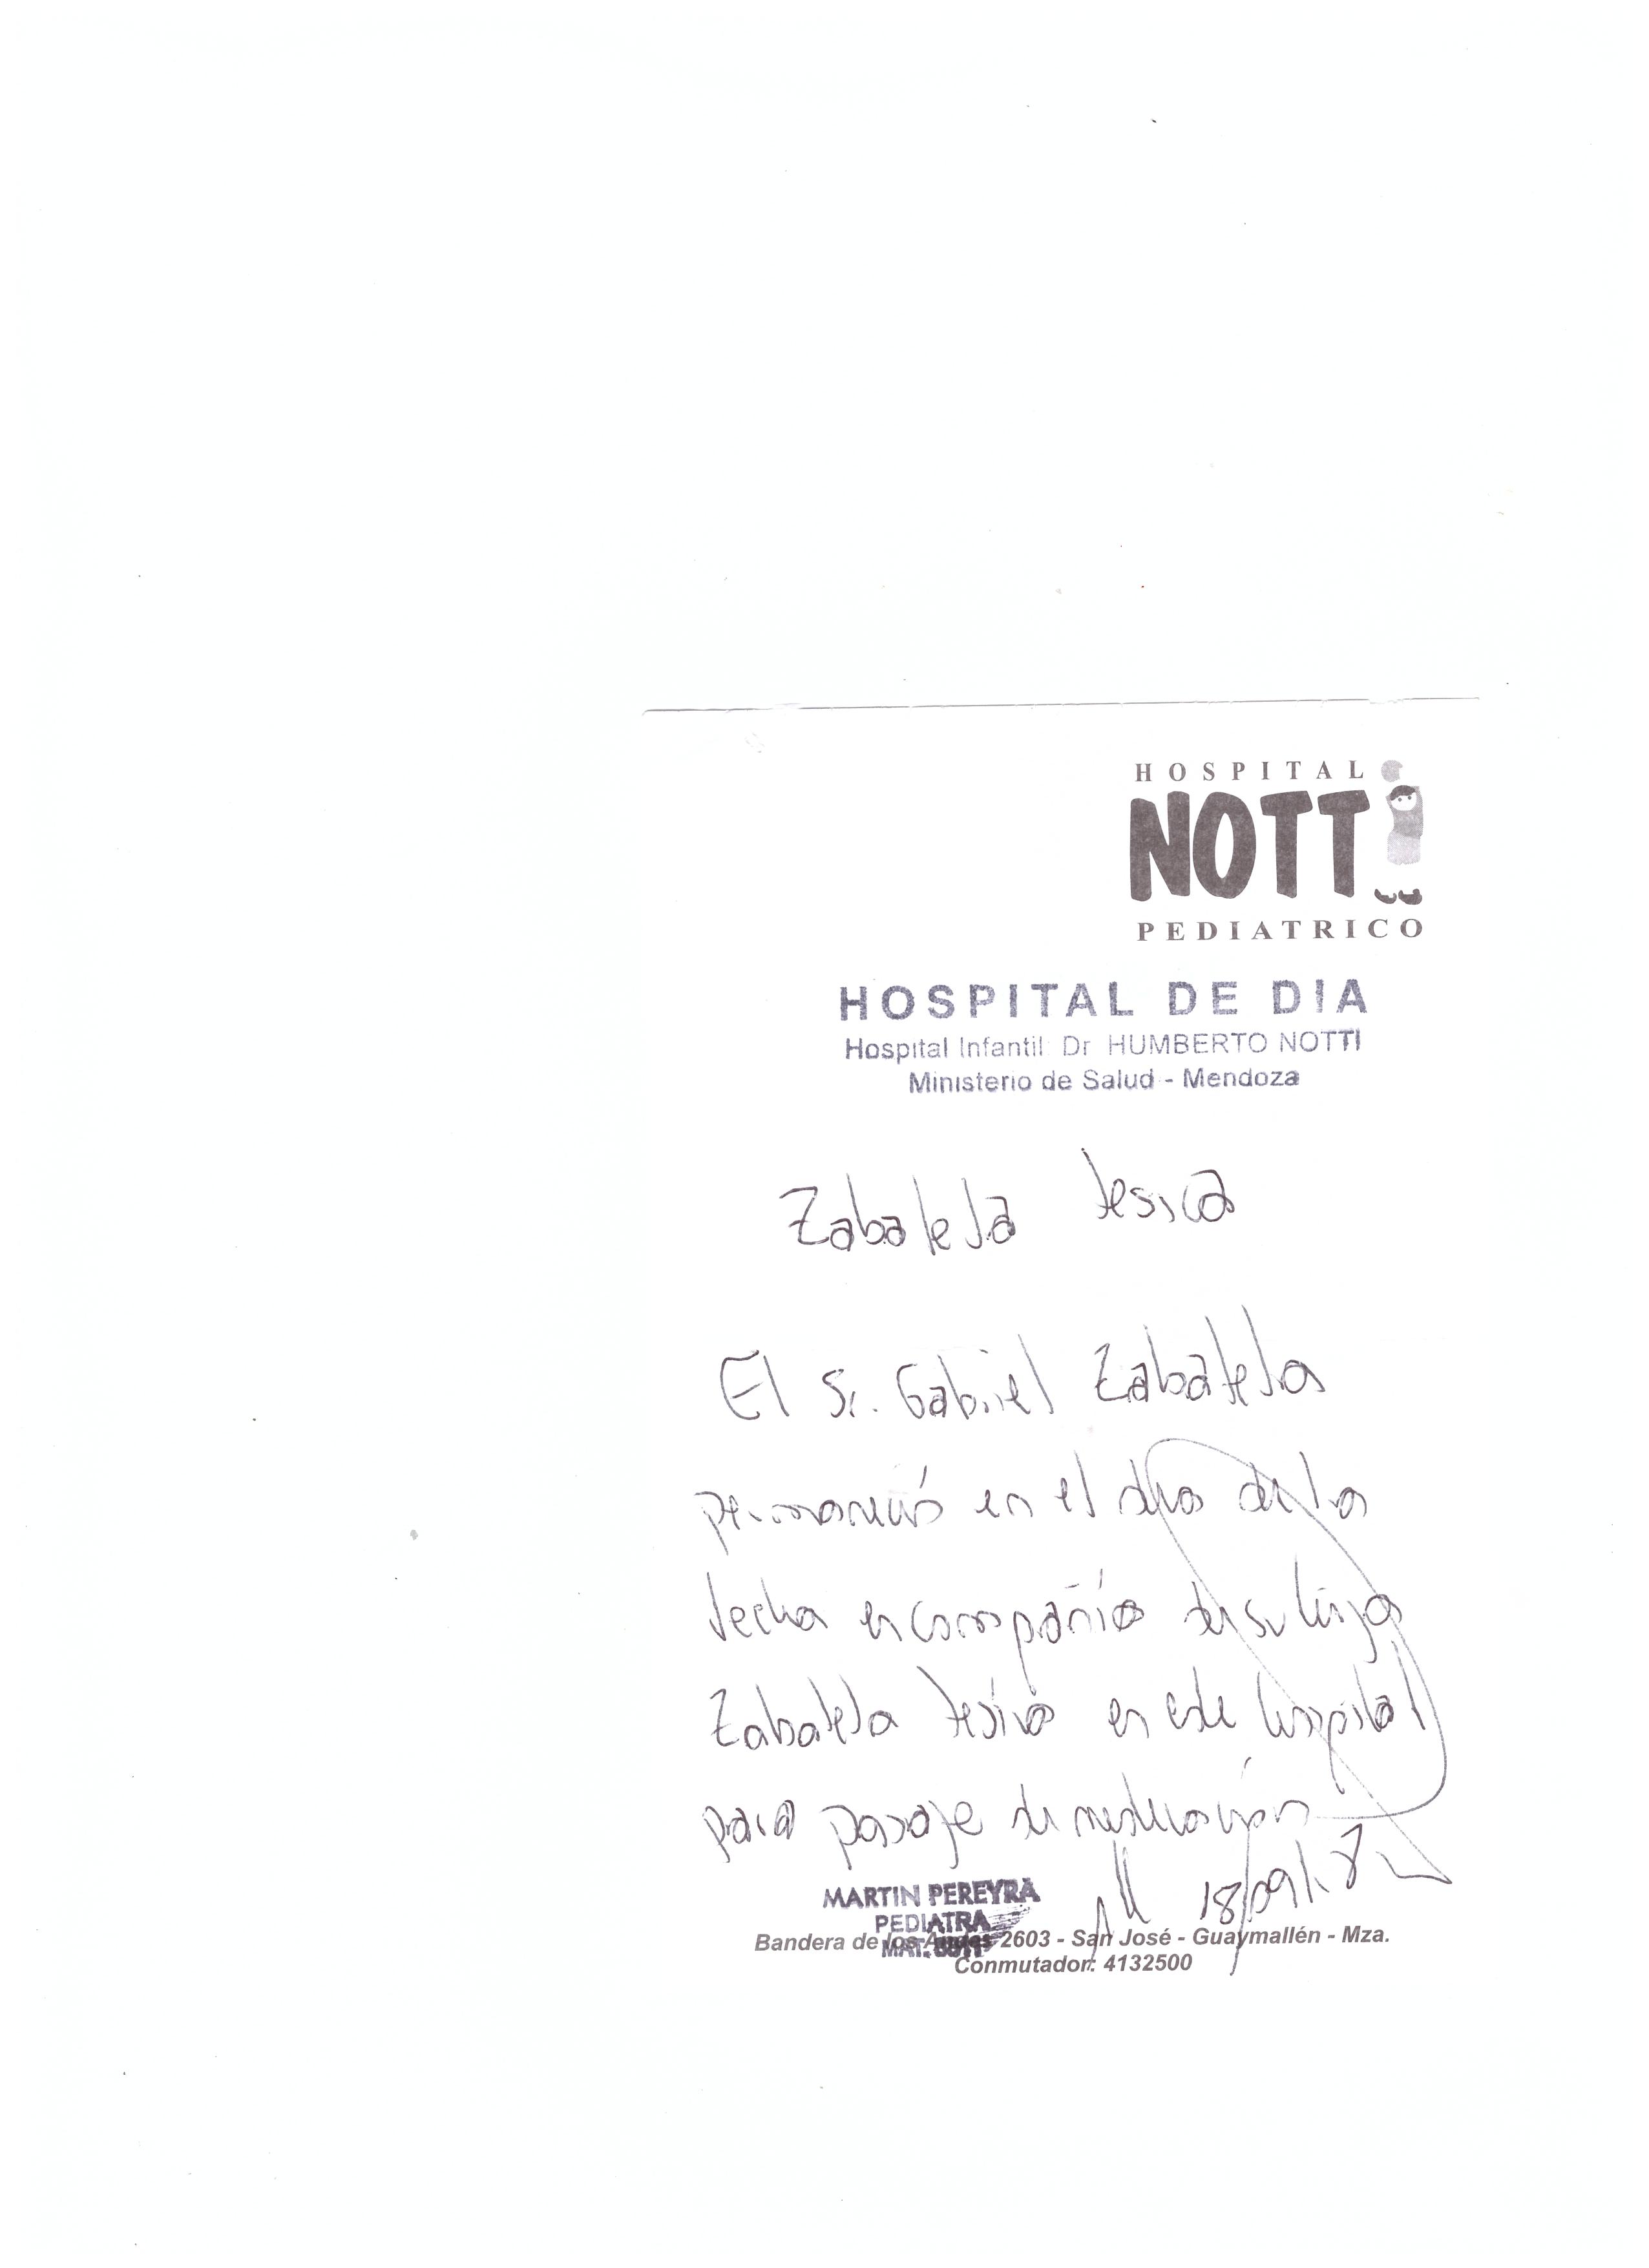 HOSPITAL
NOTTI
PEDIATRICO
HOSPITAL DE DIA
Hospital Infantil Dr HUMBERTO NOTTI
Ministerio de Salud - Mendoza
Zabaleta Jesica
El Sr. Gabriel Zabaleta
permaneció en el día de la
fecha en compañía de su hija
Zabaleta Jesica en este hospital
para pasaje de medicación
18/09/17
MARTIN PEREYRA
PEDIATRA
MAT.
Bandera de los Andes 2603 - San José - Guaymallén - Mza.
Conmutador: 4132500